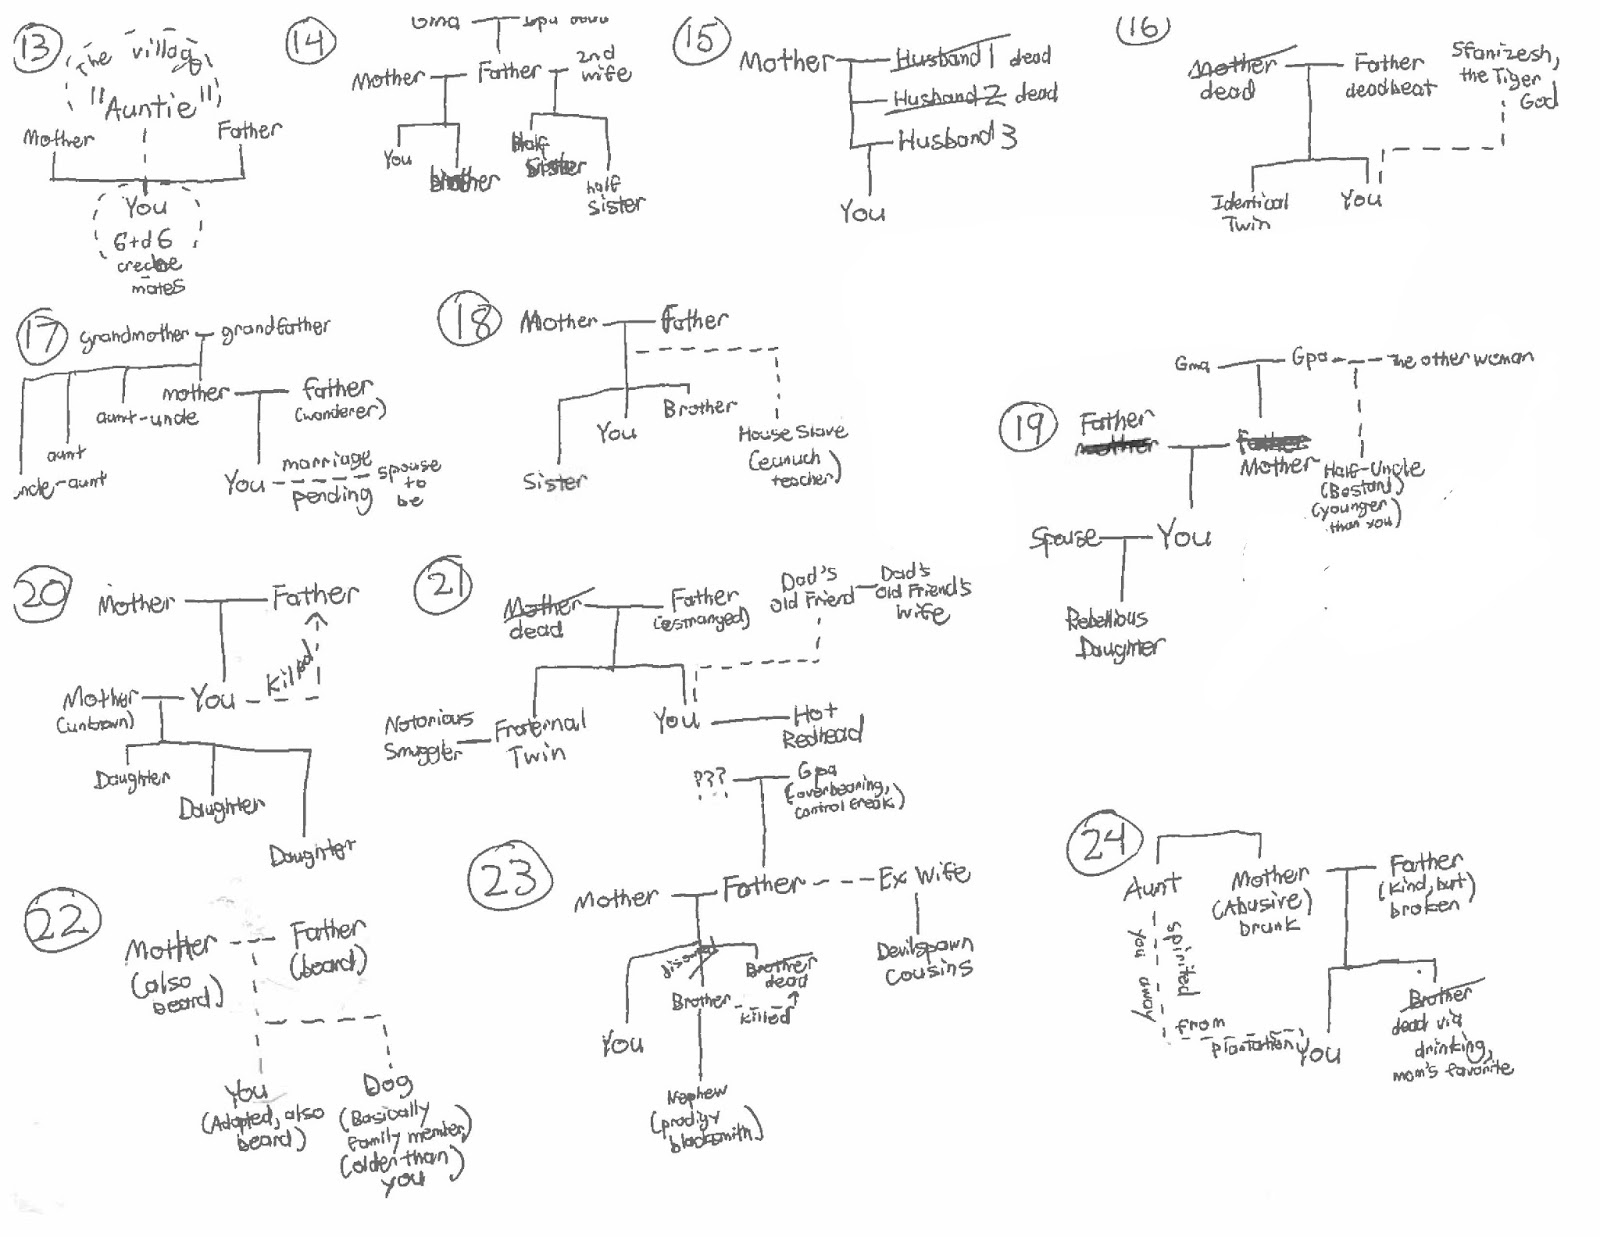 13
The village
"Auntie"
Mother
Father
You
6+d6
creche
mates
14
Gma
Mother
Father
2nd
wife
You
brother
Half
Sister
half
sister
15
Mother
Husband 1 dead
Husband 2 dead
Husband 3
You
16
Mother
dead
Father
deadbeat
Stanizesh,
the Tiger
God
Identical
Twin
You
17
grandmother
grandfather
mother
father
(wanderer)
aunt-uncle
aunt
ncle-aunt
You
marriage
pending
spouse
to
be
18
Mother
Father
Sister
You
Brother
House Slave
(eunuch
teacher)
19
Gma
Gpa
The other woman
Father
mother
father
Mother
Half-Uncle
(Bastard)
(younger
than you)
Spouse
You
Rebellious
Daughter
20
Mother
Father
Killed
Mother
(unknown)
You
Daughter
Daughter
Daughter
21
Mother
dead
Father
(estranged)
Dad's
old Friend
Dad's
old Friend's
Wife
Notorious
Smuggler
Fraternal
Twin
You
Hot
Redhead
22
Mother
(also
beard)
Father
(beard)
You
(Adopted, also
beard)
Dog
(Basically
family member)
(older than
you)
23
???
Gpa
(overbearing,
control freak)
Mother
Father
Ex Wife
disowned
Brother
dead
Devilspawn
cousins
You
Brother
killed
Nephew
(prodigy
blacksmith)
24
Aunt
Mother
(Abusive)
drunk
Father
(Kind, but
broken)
spirited
you away
from
plantation
You
Brother
dead via
drinking,
mom's favorite